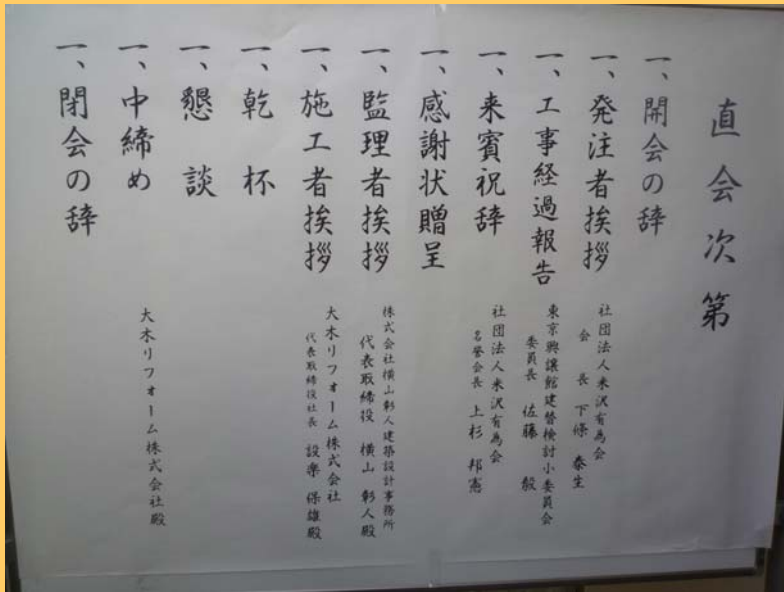 直会次第
一、開会の辞
一、発注者挨拶
社団法人米沢有為会
会長 下條 泰生
一、工事経過報告
東京興譲館建替検討小委員会
委員長 佐藤 毅
一、来賓祝辞
社団法人米沢有為会
名誉会長 上杉 邦憲
一、感謝状贈呈
一、監理者挨拶
株式会社横山彰人建築設計事務所
代表取締役 横山 彰人殿
一、施工者挨拶
大木リフォーム株式会社
代表取締役社長 設楽 保雄殿
一、乾杯
一、懇談
一、中締め
大木リフォーム株式会社殿
一、閉会の辞